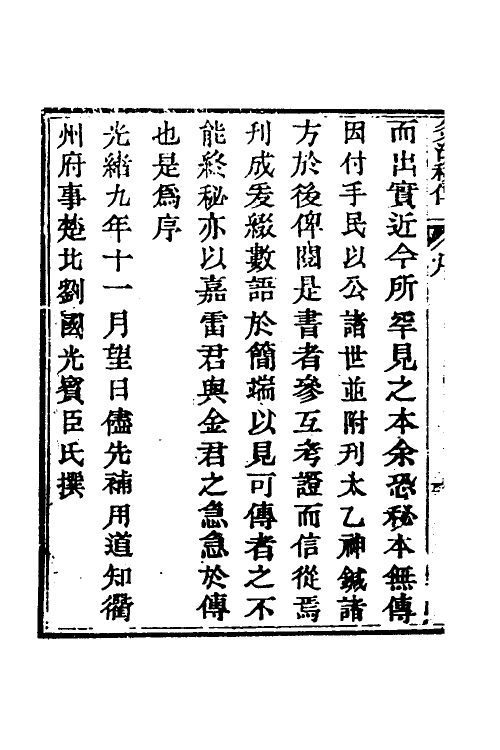 而出實近今所罕見之本余恐秘本無傳
因付手民以公諸世並附刊太乙神鍼諸
方於後俾閱是書者參互考證而信從焉
刊成爰綴數語於簡端以見可傳者之不
能終秘亦以嘉雷君與金君之急急於傳
也是爲序
光緒九年十一月望日儘先補用道知衢
州府事楚北劉國光賓臣氏撰